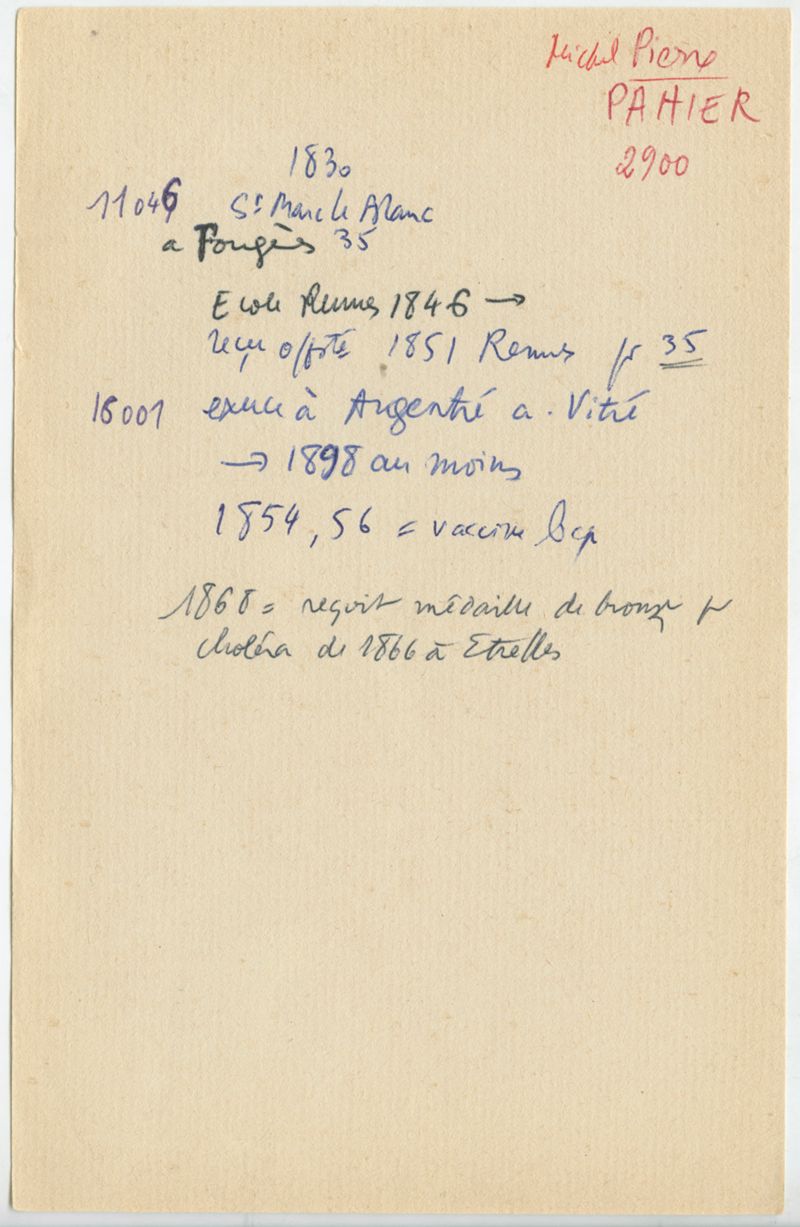 Michel Pierre
PAHIER
2900
1830
11046 St Marc le Blanc
a Fougères 35
Ecole Rennes 1846 →
reçu offité 1851 Rennes pr 35
16001 exerce à Argentré a. Vitré
→ 1898 au moins
1854, 56 = vaccine bcp
1868 = reçoit médaille de bronze pr
choléra de 1866 à Etrelles